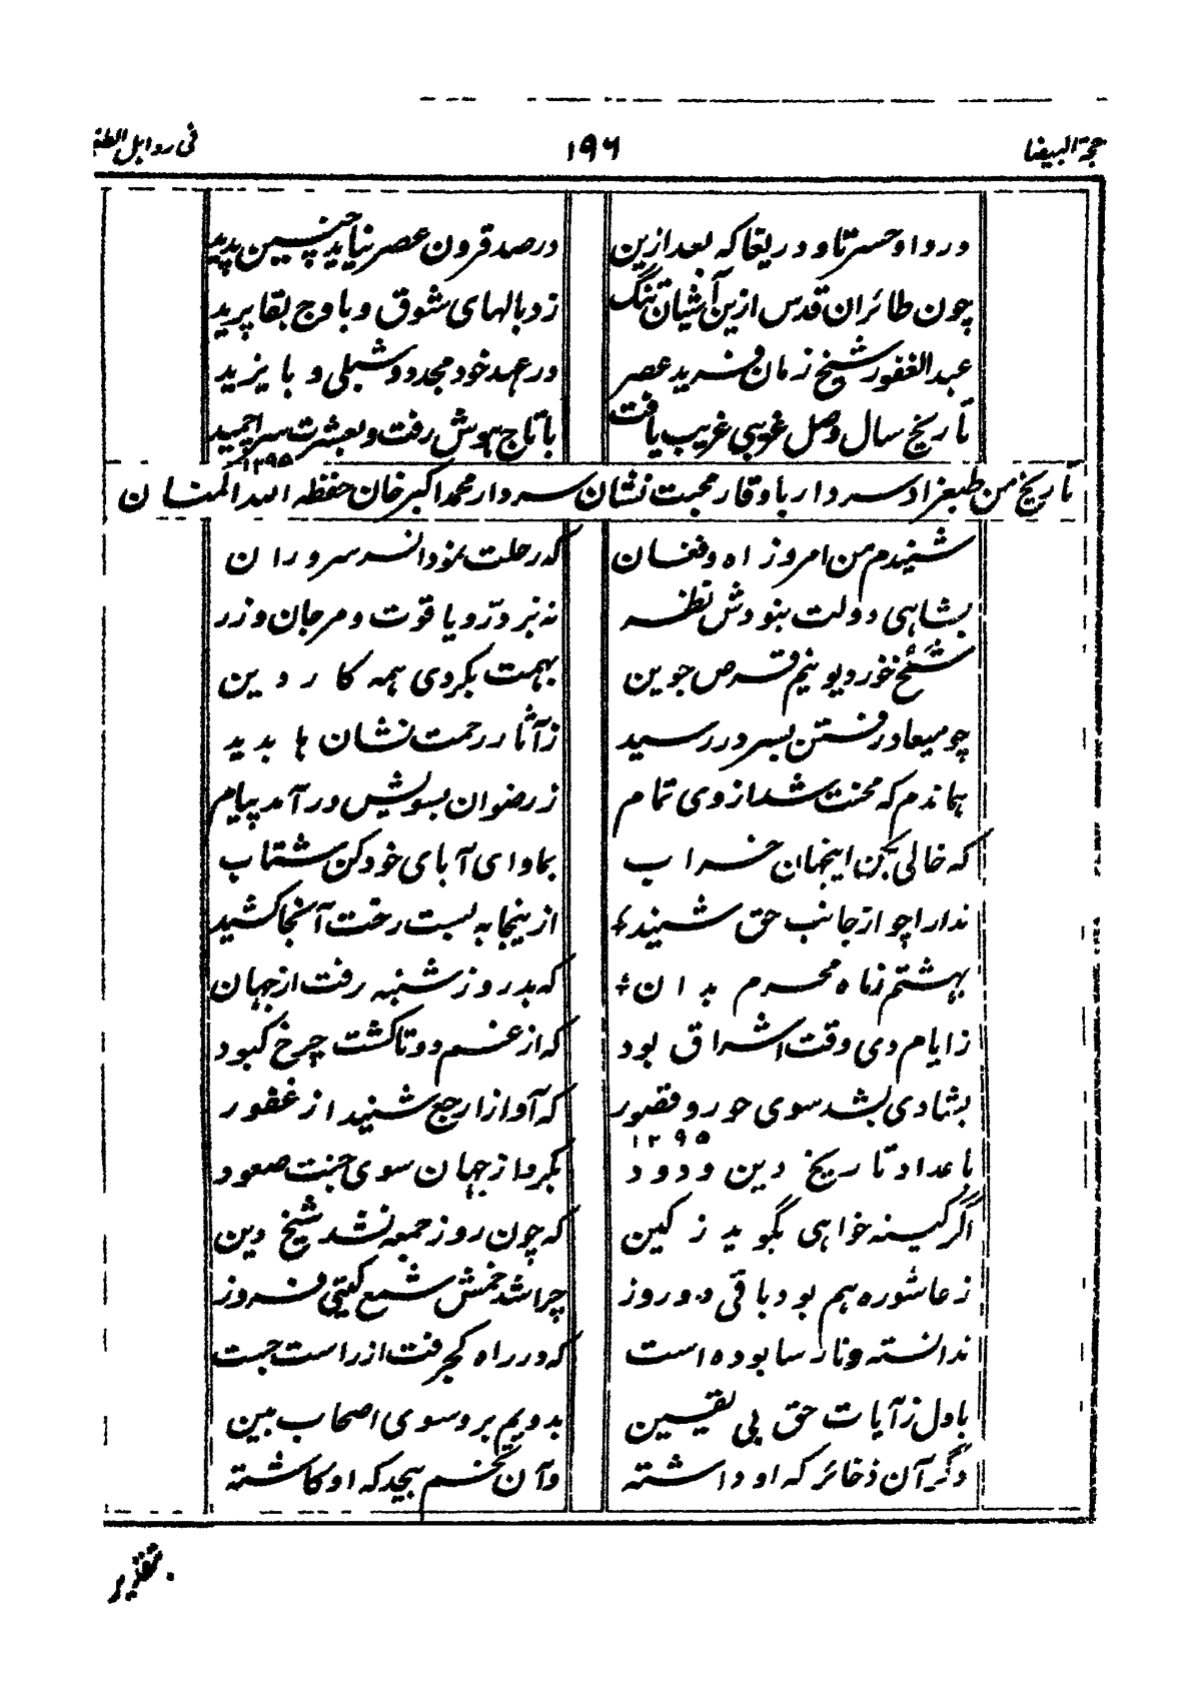 حجة البیضا ۱۹۶ فی رد اہل الطغ
دردا و حسرتا و دریغا کہ بعد ازین در صد قرون عصر نیاید چنین پدید
چون طائران قدس ازین آشیان تنگ زد بالہای شوق و باوج بقا پرید
عبد الغفور شیخ زمان فرید عصر در عہد خود مجدد و شبلی و بایزید
تاریخ سال وصل غریبی غریب یافت با تاج ہوش رفت و بعشرت سر
۱۲۹۵
تاریخ من طبعزاد سردار باوقار محبت نشان سردار محمد اکبر خان حفظہ اللہ المنان
شنیدم من امروز اہ و فغان کہ رحلت نمود انسر سروران
بشاہی دولت بنودش نظر نہ بر در و یاقوت و مرجان و زر
شیخ خوردیو نیم قرص جوین بہمت بکردی ہمہ کار دین
چو میعاد رفتن بسر در رسید ز آثار رحمت نشان ہا بدید
ہماندم کہ محنت شد از وی تمام ز رضوان بسویش در آمد پیام
کہ خالی بکن اینجہان خراب بماوای آبای خود کن شتاب
ندا را چو از جانب حق شنید از ینجا بہ بست رخت آنجا کشید
بہشتم ز ماہ محرم بدان کہ بد روز شنبہ رفت از جہان
ز ایام دی وقت اشراق بود کہ از غم دوتا گشت چرخ کبود
بشادی بشد سوی حور و قصور کہ آواز ارجع شنید از غفور
۱۲۹۵
باعداد تاریخ دین ودود بکرد از جہان سوی جنت صعود
اگر کینہ خواہی بگوید ز کین کہ چون روز جمعہ نشد شیخ دین
ز عاشورہ ہم بود باقی دو روز چرا شد خمش شمع گیتی فروز
ندانستہ و نارسا بودہ است کہ در راہ کج رفت از راست جست
بادل ز آیات حق بی یقین بدویم برو سوی اصحاب بین
دگر آن ذخائر کہ او داشتہ وآن تخم بیجد کہ او کاشتہ